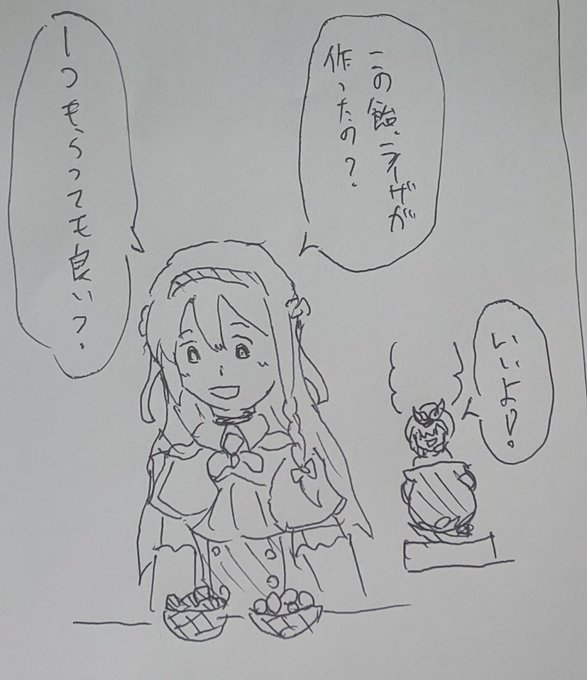 この飴、ライザが
作ったの？
一つもらっても良い？
いいよ！